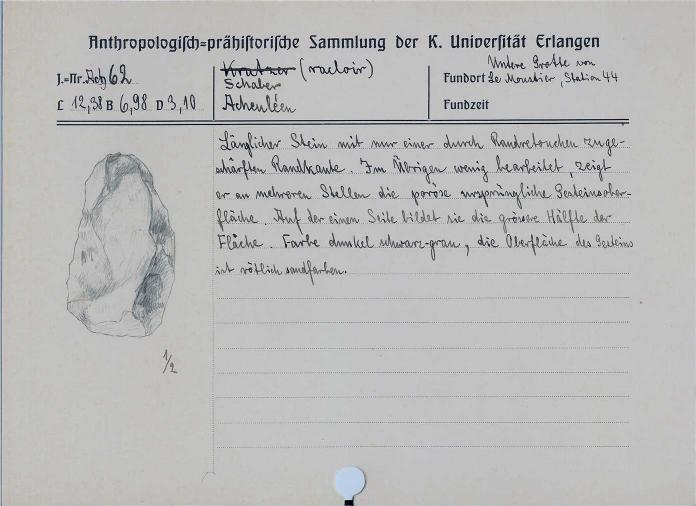 Anthropologisch=prähistorische Sammlung der K. Universität Erlangen
J.=Nr. Ach 62
L 12,38 B 6,98 D 3,10
Kratzer (racloir)
Schaber
Acheuléen
Untere Grotte von
Fundort Le Moustier, Station 44
Fundzeit
Länglicher Stein mit nur einer durch Randretouchen zuge-
schärften Randkante. Im Übrigen wenig bearbeitet, zeigt
er an mehreren Stellen die poröse ursprüngliche Gesteinsober-
fläche. Auf der einen Seite bildet sie die grössere Hälfte der
Fläche. Farbe dunkel schwarz-grau, die Oberfläche des Gesteins
ist rötlich sandfarben.
1/2